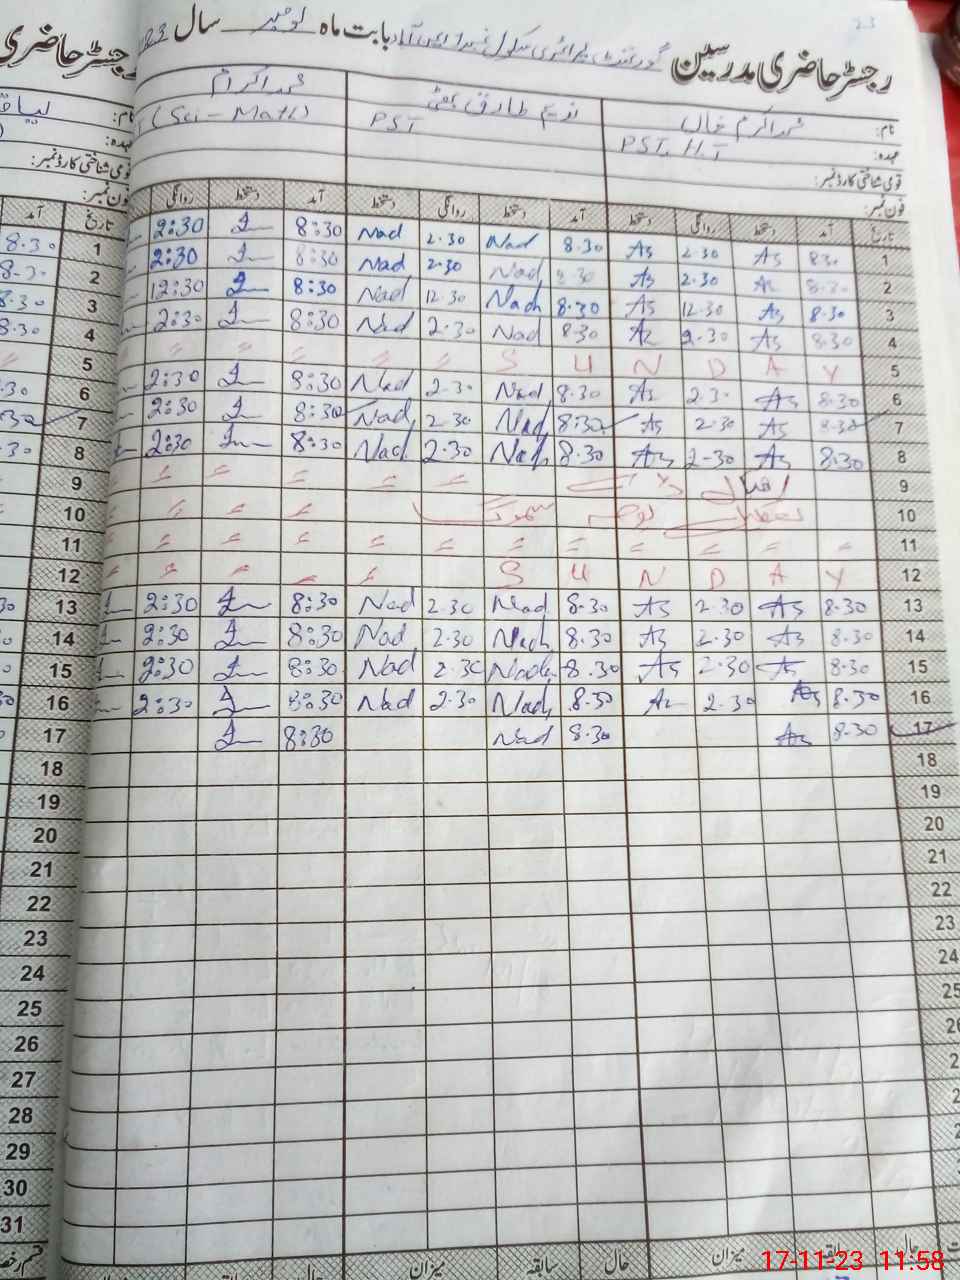 23
رجسٹر حاضری مدرسین گورنمنٹ پرائمری سکول بابت ماہ نومبر سال
نام: محمد اکرم خان ندیم طارق بھٹی محمد اکرم
عہدہ: PST. H.T PST (Sci - Math)
قومی شناختی کارڈ نمبر:
فون نمبر:
تاریخ آمد دستخط روانگی دستخط آمد دستخط روانگی دستخط آمد دستخط روانگی
1 8.30 As 2.30 As 8.30 Nad 2.30 Nad 8:30 2:30 1
2 8.30 As 2.30 As 8.30 Nad 2.30 Nad 8:30 2:30 2
3 8.30 As 12.30 As 8.30 Nad 12.30 Nad 8:30 12:30 3
4 8.30 As 2.30 As 8.30 Nad 2.30 Nad 8:30 2:30 4
5 S U N D A Y 5
6 8.30 As 2.30 As 8.30 Nad 2.30 Nad 8:30 2:30 6
7 8.30 As 2.30 As 8.30 Nad 2.30 Nad 8:30 2:30 7
8 8.30 As 2-30 As 8.30 Nad 2.30 Nad 8:30 2:30 8
9 اقبال ڈے 9
10 تعطیلات بوجہ سموگ 10
11 11
12 S U N D A Y 12
13 8.30 As 2.30 As 8.30 Nad 2.30 Nad 8:30 2:30 13
14 8.30 As 2.30 As 8.30 Nad 2.30 Nad 8:30 2:30 14
15 8.30 As 2.30 As 8.30 Nad 2.30 Nad 8:30 2:30 15
16 8.30 As 2.30 As 8.30 Nad 2.30 Nad 8:30 2:30 16
17 8.30 As 8.30 Nad 8:30 17
18 18
19 19
20 20
21 21
22 22
23 23
24 24
25 25
26
27
28
29
30
31
میزان حال سابقہ میزان حال
رجسٹر حاضری
نام:
عہدہ:
قومی شناختی کارڈ نمبر:
فون نمبر:
تاریخ آمد
8.30
8.30
8.30
8.30
17-11-23 11:58